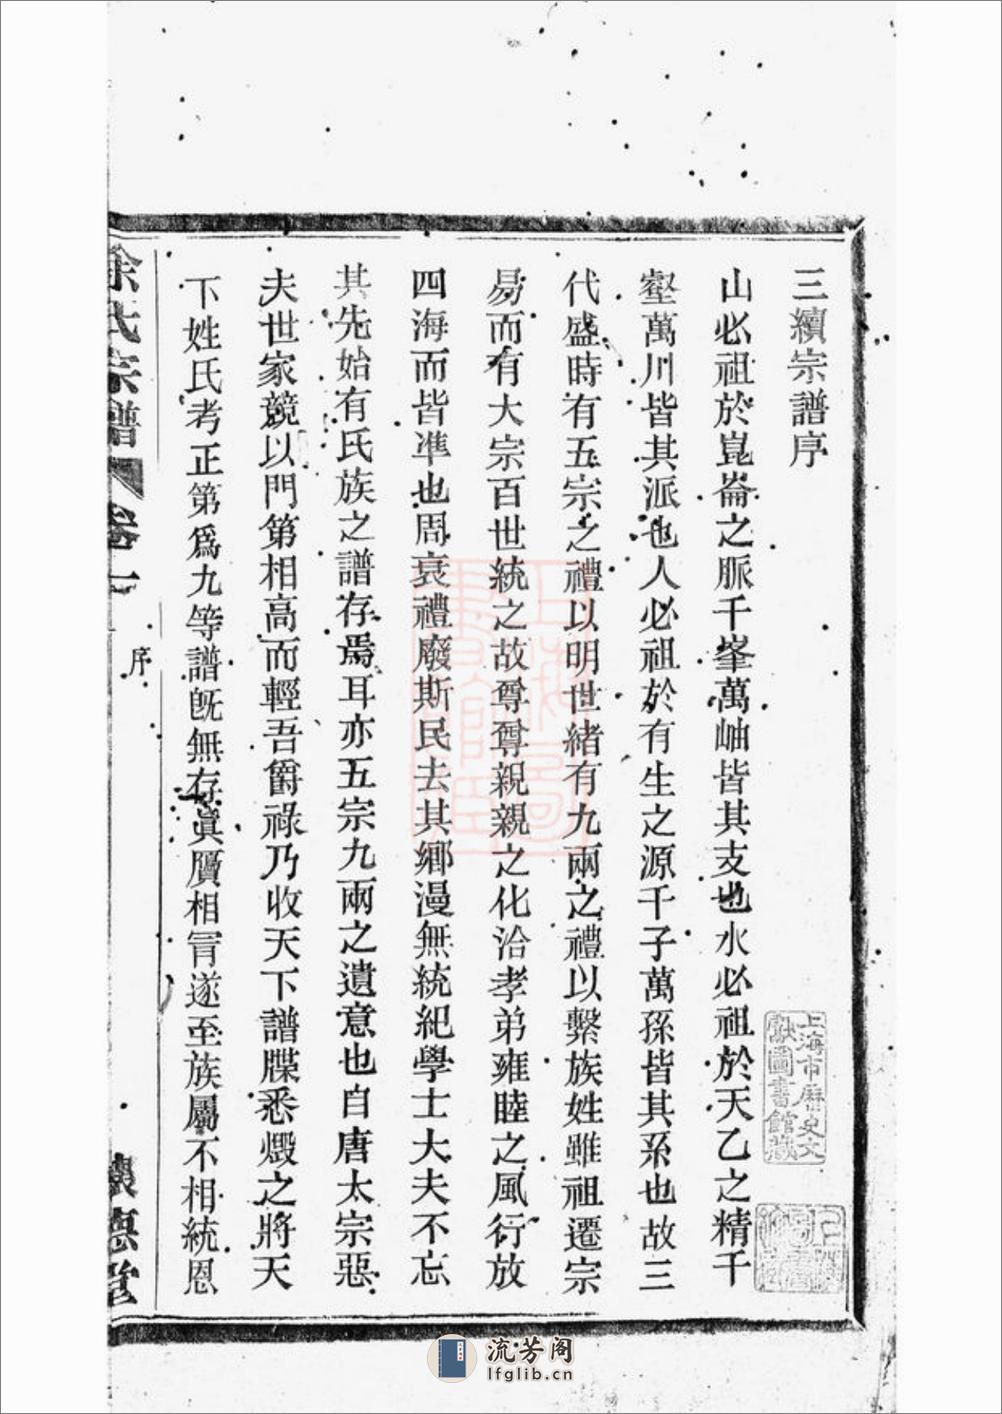 三續宗譜序
山必祖於崑崙之脈千峯萬岫皆其支也水必祖於天乙之精千
壑萬川皆其派也人必祖於有生之源千子萬孫皆其系也故三
代盛時有五宗之禮以明世緒有九兩之禮以繫族姓雖祖遷宗
易而有大宗百世統之故尊尊親親之化洽孝弟雍睦之風行放
四海而皆準也周衰禮廢斯民去其鄉漫無統紀學士大夫不忘
其先始有氏族之譜存焉耳亦五宗九兩之遺意也自唐太宗惡
夫世家競以門第相高而輕吾爵祿乃收天下譜牒悉燬之將天
下姓氏考正第爲九等譜旣無存眞贗相冒遂至族屬不相統恩
徐氏宗譜 卷一
序
懷德堂
上海市歷史文
獻圖書館藏
上海圖
書館藏
流芳阁
lfglib.cn